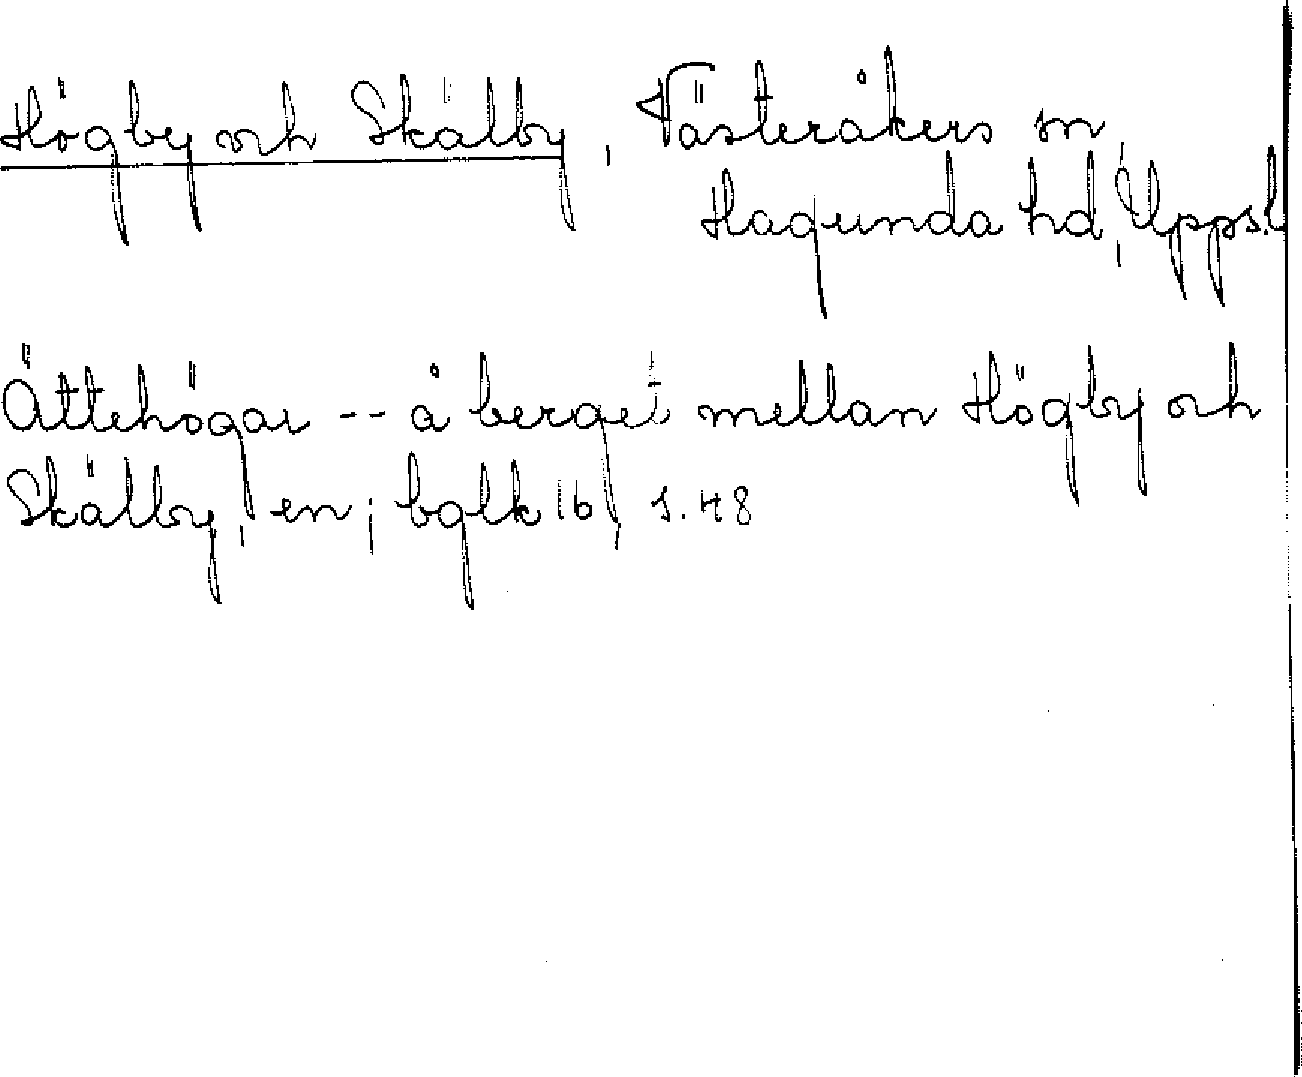 Högby och Skälby, Västeråkers sn,
Hagunda hd, Upps.l
Ättehögar -- å berget mellan Högby och
Skälby, en; bglk 16, s. 48